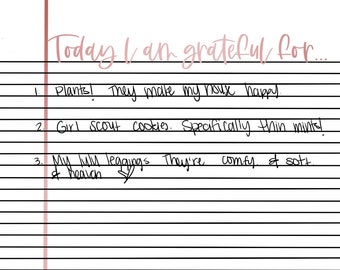 Today I am grateful for...
1. Plants! They make my house happy.
2. Girl scout cookies. Specifically thin mints!
3. My lulu leggings They're comfy & soft
& heaven